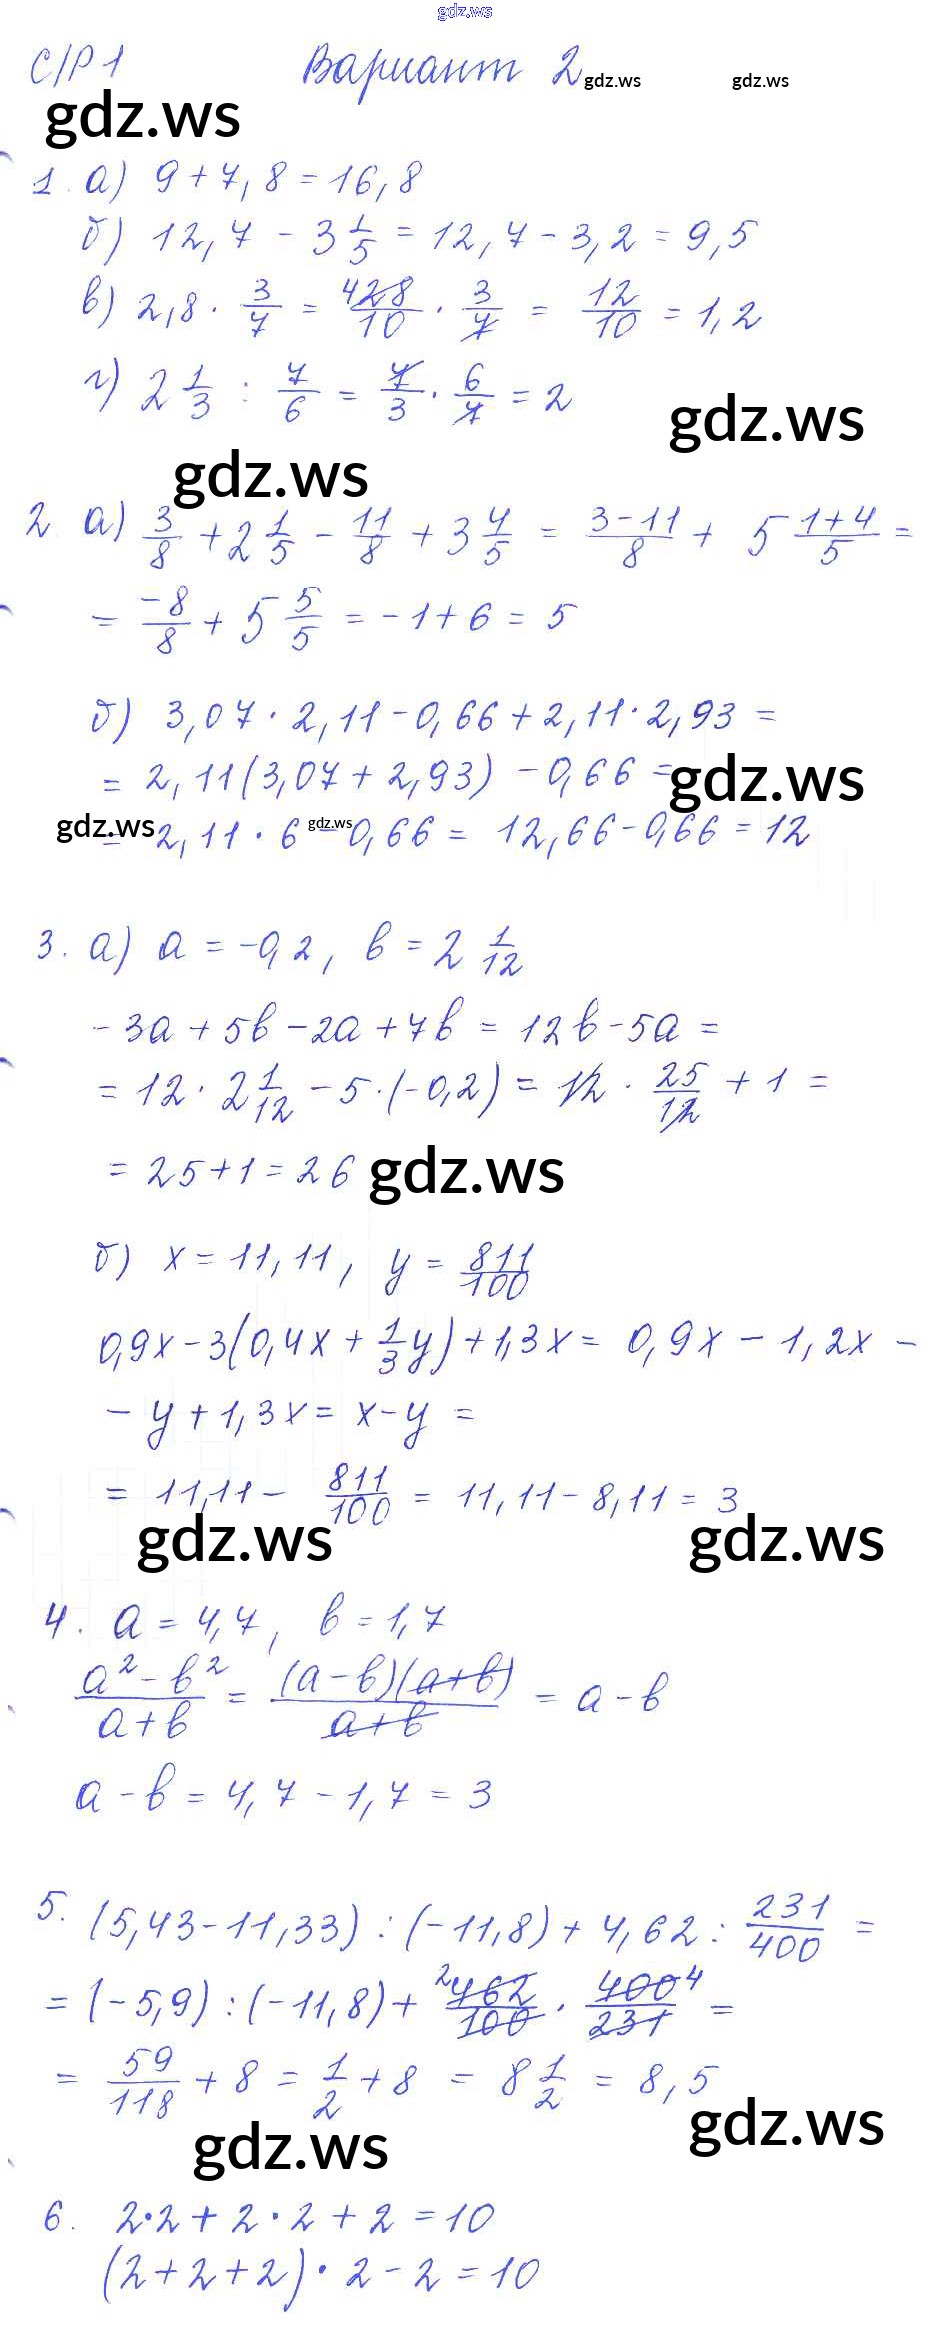 gdz.ws
С/Р 1 Вариант 2 gdz.ws gdz.ws
gdz.ws
1. а) 9 + 7,8 = 16,8
б) 12,7 - 3 1/5 = 12,7 - 3,2 = 9,5
в) 2,8 · 3/7 = 4 28/10 · 3/7 = 12/10 = 1,2
г) 2 1/3 : 7/6 = 7/3 · 6/7 = 2
gdz.ws
gdz.ws
2. а) 3/8 + 2 1/5 - 11/8 + 3 4/5 = (3-11)/8 + 5 (1+4)/5 =
= -8/8 + 5 5/5 = -1 + 6 = 5
б) 3,07 · 2,11 - 0,66 + 2,11 · 2,93 =
= 2,11(3,07 + 2,93) - 0,66 =
gdz.ws
gdz.ws gdz.ws
= 2,11 · 6 - 0,66 = 12,66 - 0,66 = 12
3. а) a = -0,2, b = 2 1/12
- 3a + 5b - 2a + 7b = 12b - 5a =
= 12 · 2 1/12 - 5 · (-0,2) = 12 · 25/12 + 1 =
= 25 + 1 = 26
gdz.ws
б) x = 11,11, y = 811/100
0,9x - 3(0,4x + 1/3 y) + 1,3x = 0,9x - 1,2x -
- y + 1,3x = x - y =
= 11,11 - 811/100 = 11,11 - 8,11 = 3
gdz.ws gdz.ws
4. a = 4,7, b = 1,7
(a² - b²)/(a + b) = (a - b)(a + b)/(a + b) = a - b
a - b = 4,7 - 1,7 = 3
5. (5,43 - 11,33) : (-11,8) + 4,62 : 231/400 =
= (-5,9) : (-11,8) + 2 462/100 · 400/231 4 =
= 59/118 + 8 = 1/2 + 8 = 8 1/2 = 8,5
gdz.ws
gdz.ws
6. 2·2 + 2·2 + 2 = 10
(2 + 2 + 2) · 2 - 2 = 10